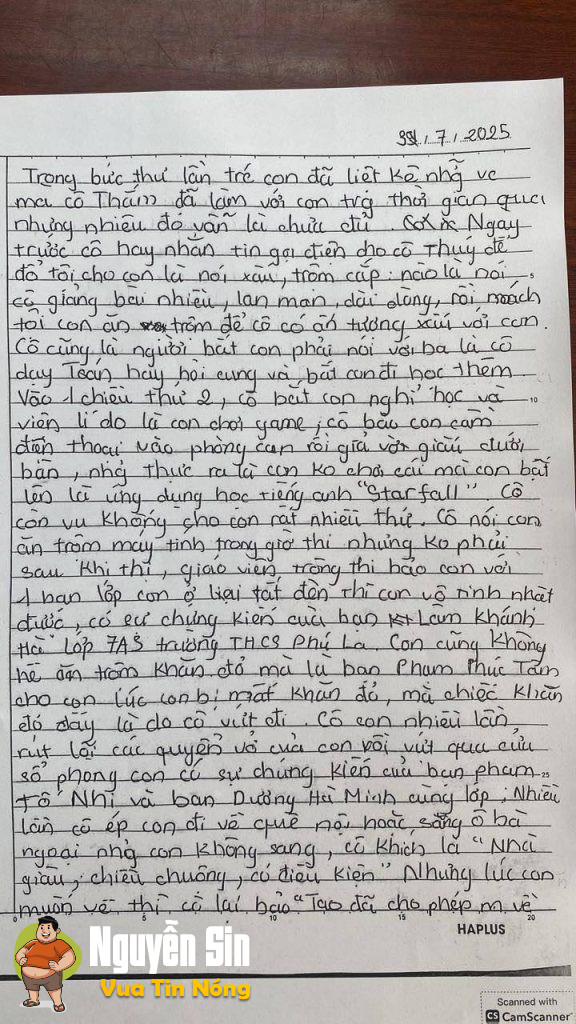 31.7.2025
Trong bức thư lần trc con đã liệt kê nhg vc
mà cô Thắm đã làm với con trg thời gian qua
nhưng nhiêu đó vẫn là chưa đủ. Ngay
trước cô hay nhắn tin gọi điện cho cô Thúy để
đổ tội cho con là nói xấu, trộm cắp: nào là nói
cô giảng bêu nhiêu, lan man, dài dòng, rồi mách
tội con ăn trộm để cô có ấn tượng xấu với con.
Cô cũng là người bắt con phải nói với ba là cô
dạy Toán hay, hỏi cung và bắt con đi học thêm
Vào 1 chiều thứ 2, cô bắt con nghỉ học và
viện lí do là con chơi game, cô bảo con cầm
điện thoại vào phòng con rồi giả vờ giấu dưới
bàn, nhg thực ra là con ko chơi cái mà con bật
lên là ứng dụng học tiếng anh "Starfall". Cô
còn vu khống cho con rất nhiều thứ. Cô nói con
ăn trộm máy tính trong giờ thi nhưng ko phải
sau khi thi, giáo viên trông thi bảo con với
1 bạn lớp con ở lại tắt đèn thì con vô tình nhặt
được, có sự chứng kiến của bạn Lâm Khánh
Hà lớp 7A5 trường THCS Phú La. Con cũng không
hề ăn trộm khăn đỏ mà là bạn Phạm Phúc Tâm
cho con lúc con bị mất khăn đỏ, mà chiếc khăn
đó đấy là do cô vứt đi. Cô còn nhiều lần
rút lõi các quyển vở của con rồi vứt qua cửa
sổ phòng con có sự chứng kiến của bạn Phạm
Tố Nhi và bạn Dương Hà Minh cùng lớp; Nhiều
lần cô ép con đi về quê nội hoặc sang ô bà
ngoại nhg con không sang, cô khích là "Nhà
giàu, chiều chuộng, có điều kiện" Nhưng lúc con
muốn về thì cô lại bảo "Tao đã cho phép m về
0 5 10 15 20
HAPLUS
Nguyễn Sin
Vua Tin Nóng
Scanned with
CS CamScanner